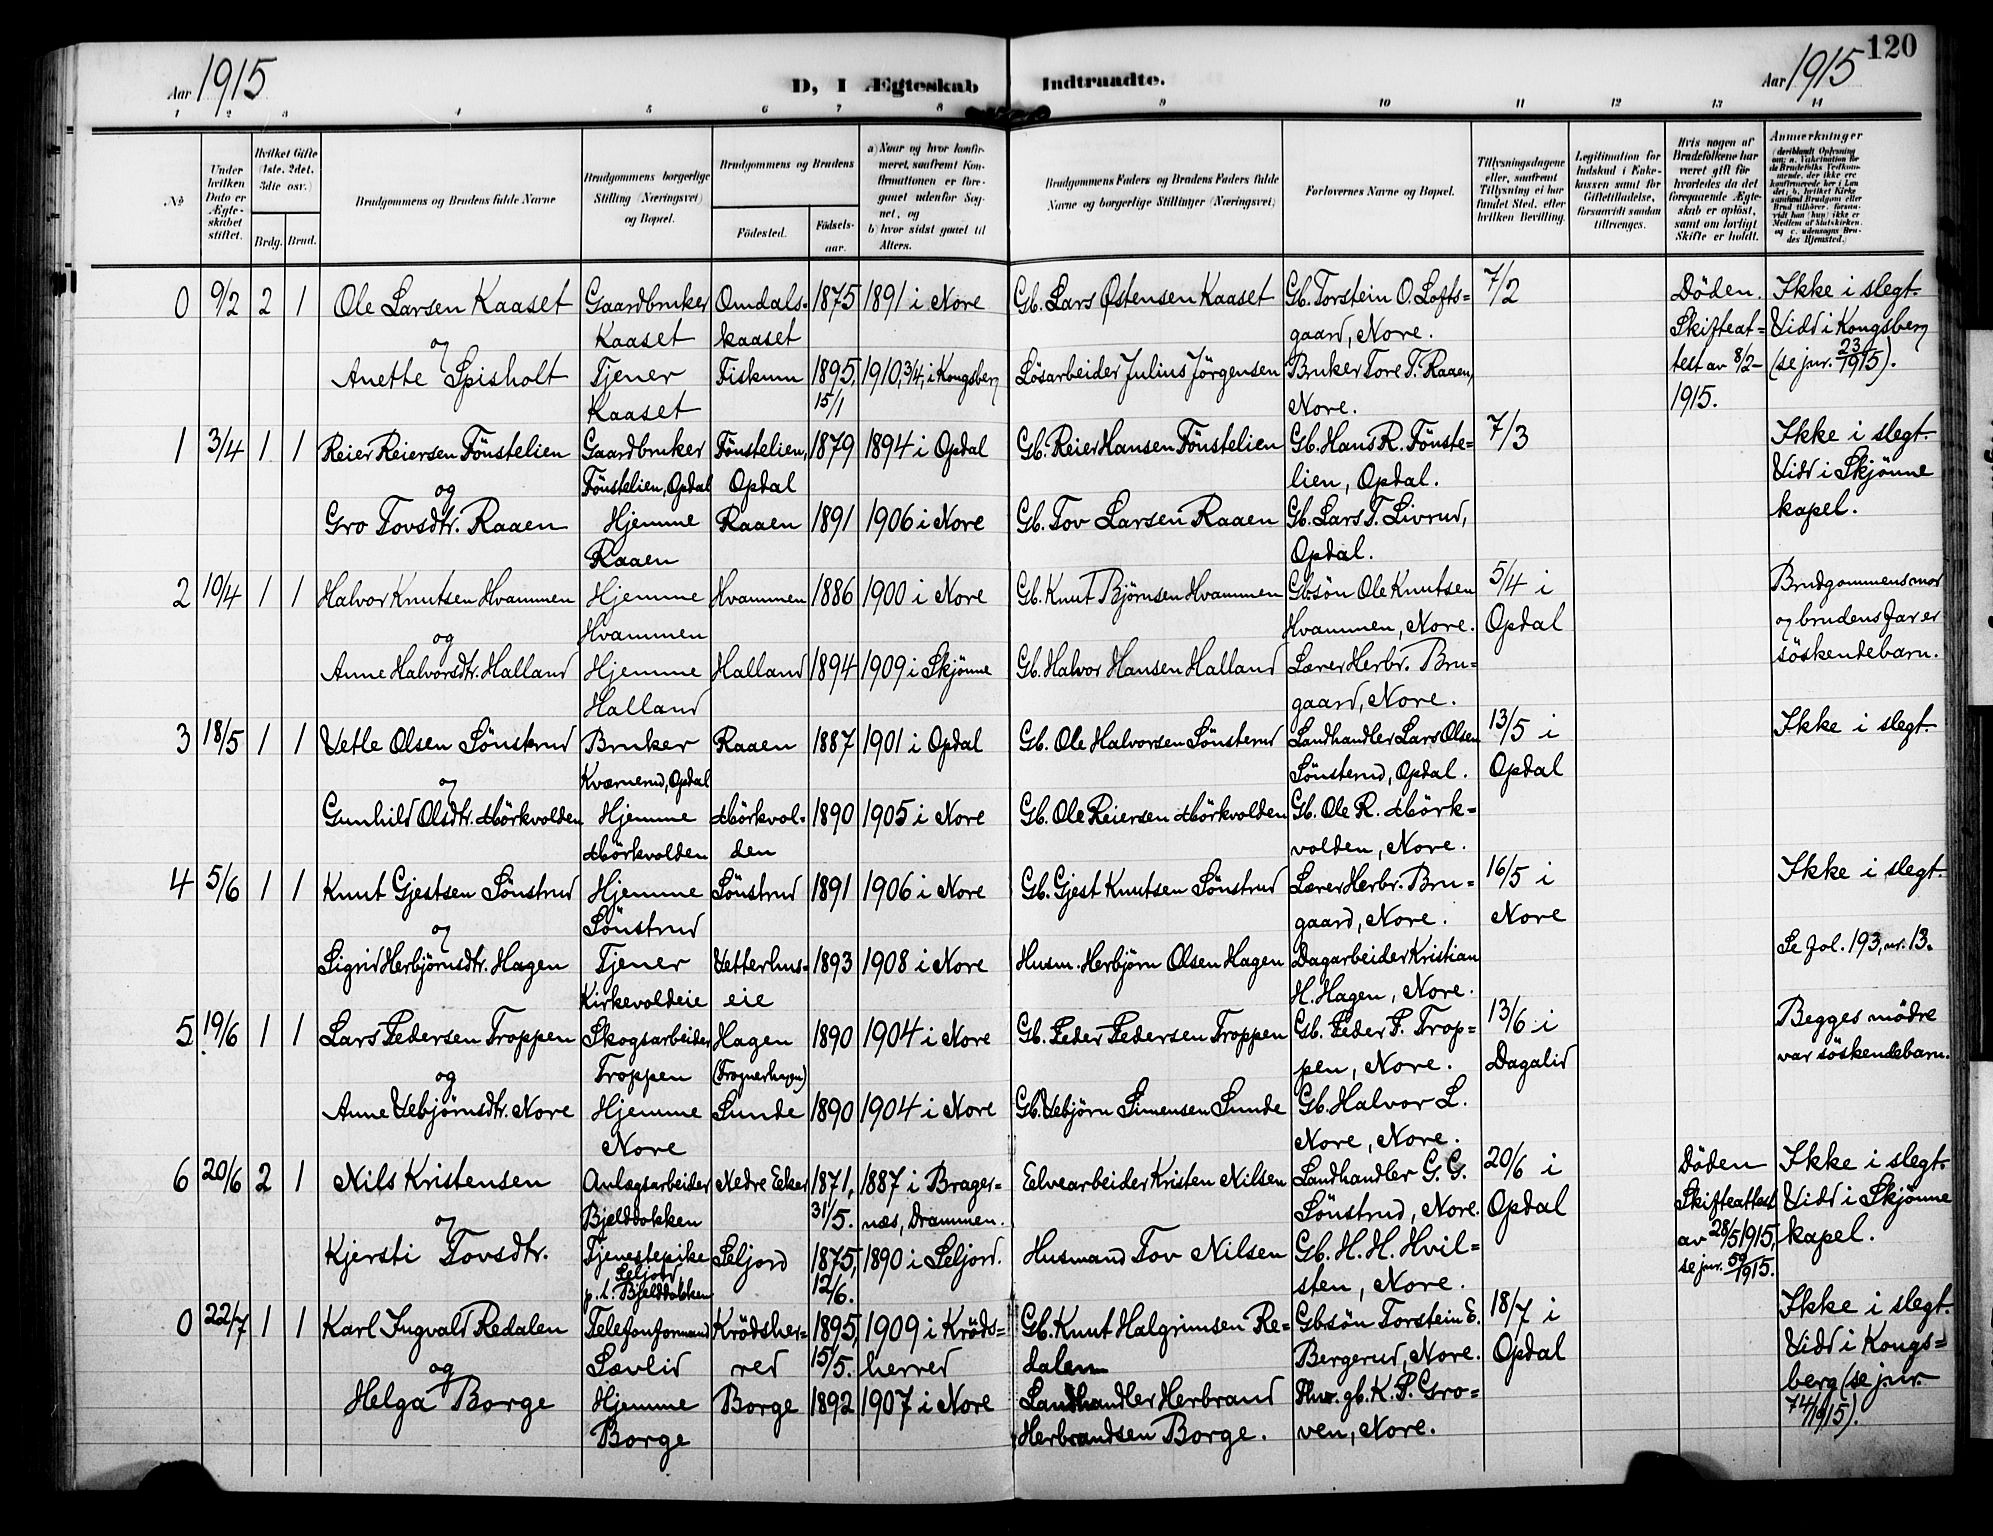 Aar 1915
D, I Ægteskab Indtraadte.
Aar 1915 120
1 2 3 4 5 6 7 8 9 10 11 12 13 14
No
Under hvilken Dato er Ægteskabet stiftet.
Hvilket Gifte (1ste, 2det, 3dte osv.)
Brdg. Brud.
Brudgommens og Brudens fulde Navne
Brudgommens borgerlige Stilling (Næringsvei) og Bopæl.
Brudgommens og Brudens
Fødested. Fødselsaar.
a) Naar og hvor konfirmeret, saafremt Konfirmationen er foregaaet udenfor Sognet, og
b) hvor sidst gaaet til Alters.
Brudgommens Faders og Brudens Faders fulde Navne og borgerlige Stillinger (Næringsvei)
Forlovernes Navne og Bopæl.
Tillysningsdagene eller, saafremt Tillysning ei har fundet Sted, efter hvilken Bevilling.
Legitimation for Indskud i Enkekassen samt for Giftetilladelse, forsaavidt saadan tiltrænges.
Hvis nogen af Brudefolkene har været gift før hvorledes da det foregaaende Ægteskab er opløst, samt om lovligt Skifte er holdt.
Anmerkninger
0 9/2 2 1 Ole Larsen Kaaset Gaardbruker Omdals- 1875 1891 i Nore Gb. Lars Østensen Kaaset Gb. Torstein O. Lofts- 7/2 Döden. Ikke i slegt.
og Kaaset kaaset gaard, Nore. Skifteat- Vidd i Kongsberg
Anette Spisholt Tjener Fiskum 1895, 1910, 3/4, i Kongsberg Løsarbeider Julius Jörgensen Bruker Tore T. Raaen, test av 8/2- (se jnr. 23/1915).
Kaaset 15/1 Nore. 1915.
1 3/4 1 1 Reier Reiersen Fönstelien Gaardbruker Fönstelien, 1879 1894 i Opdal Gb. Reier Hansen Fönstelien Gb. Hans R. Fönste- 7/3 Ikke i slegt.
og Fönstelien, Opdal Opdal lien, Opdal. Vidd i Skjönne
Gro Tovsdtr. Raaen Hjemme Raaen 1891 1906 i Nore Gb. Tov Larsen Raaen Gb. Lars T. Livrud, kapel.
Raaen Opdal.
2 10/4 1 1 Halvor Knutsen Hvammen Hjemme Hvammen 1886 1900 i Nore Gb. Knut Björnsen Hvammen Gbsön Ole Knutsen 5/4 i Brudgommens mor
og Hvammen Hvammen, Nore. Opdal og brudens far er
Anne Halvorsdtr. Halland Hjemme Halland 1894 1909 i Skjönne Gb. Halvor Hansen Halland Lærer Herbr. Bru- söskendebarn.
Halland gaard, Nore.
3 18/5 1 1 Vetle Olsen Sönsterud Bruker Raaen 1887 1901 i Opdal Gb. Ole Halvorsen Sönsterud Landhandler Lars Olsen 13/5 i Ikke i slegt.
og Kværnerud, Opdal Sönsterud, Opdal. Opdal
Gunhild Olsdtr. Mörkvolden Hjemme Mörkvol- 1890 1905 i Nore Gb. Ole Reiersen Mörkvolden Gb. Ole R. Mörk-
Mörkvolden den volden, Nore.
4 5/6 1 1 Knut Gjestsen Sönstrud Hjemme Sönstrud 1891 1906 i Nore Gb. Gjest Knutsen Sönstrud Lærer Herbr. Bru- 16/5 i Ikke i slegt.
og Sönstrud gaard, Nore. Nore
Sigrid Herbjörnsdtr. Hagen Tjener Vetterhus- 1893 1908 i Nore Husm. Herbjörn Olsen Hagen Dagarbeider Kristian Se fol. 193, nr. 13.
Kirkevoldeie eie H. Hagen, Nore.
5 19/6 1 1 Lars Pedersen Troppen Skogsarbeider Hagen 1890 1904 i Nore Gb. Peder Pedersen Troppen Gb. Peder P. Trop- 13/6 i Begges mödre
og Troppen (Frognerhagen) pen, Nore. Dagalid var söskendebarn.
Anne Vebjörnsdtr. Nore Hjemme Sunde 1890 1904 i Nore Gb. Vebjörn Simensen Sunde Gb. Halvor L.
Nore Nore, Nore.
6 20/6 2 1 Nils Kristensen Anlægsarbeider Nedre Eeker 1871, 1887 i Brager- Eelvearbeider Kristen Nilsen Landhandler G. G. 20/6 i Döden Ikke i slegt.
og Bjelddokken 31/5. næs, Drammen. Sönstrud, Nore. Opdal Skifteattest Vidd i Skjönne
Kjersti Tovsdtr. Tjenestepike Seljord 1875, 1890 i Seljord. Husmand Tov Nilsen Gb. H. H. Hvil- av 28/5 1915, kapel.
Seljord p.t. Bjelddokken 12/6. sten, Nore. se jnr. 59/1915.
0 22/7 1 1 Karl Ingvald Redalen Telefonformand Krödsher- 1895, 1909 i Kröds- Gb. Knut Halgrimsen Re- Gbsön Torstein E. 18/7 i Ikke i slegt.
og Sævlid red 15/5. herred dalen Bergerud, Nore. Opdal Vidd i Kongs-
Helga Borge Hjemme Borge 1892 1907 i Nore Landhandler Herbrand Fhv. gb. K. P. Gro- berg (se jnr.
Borge Herbrandsen Borge. ven, Nore. 74/1915).